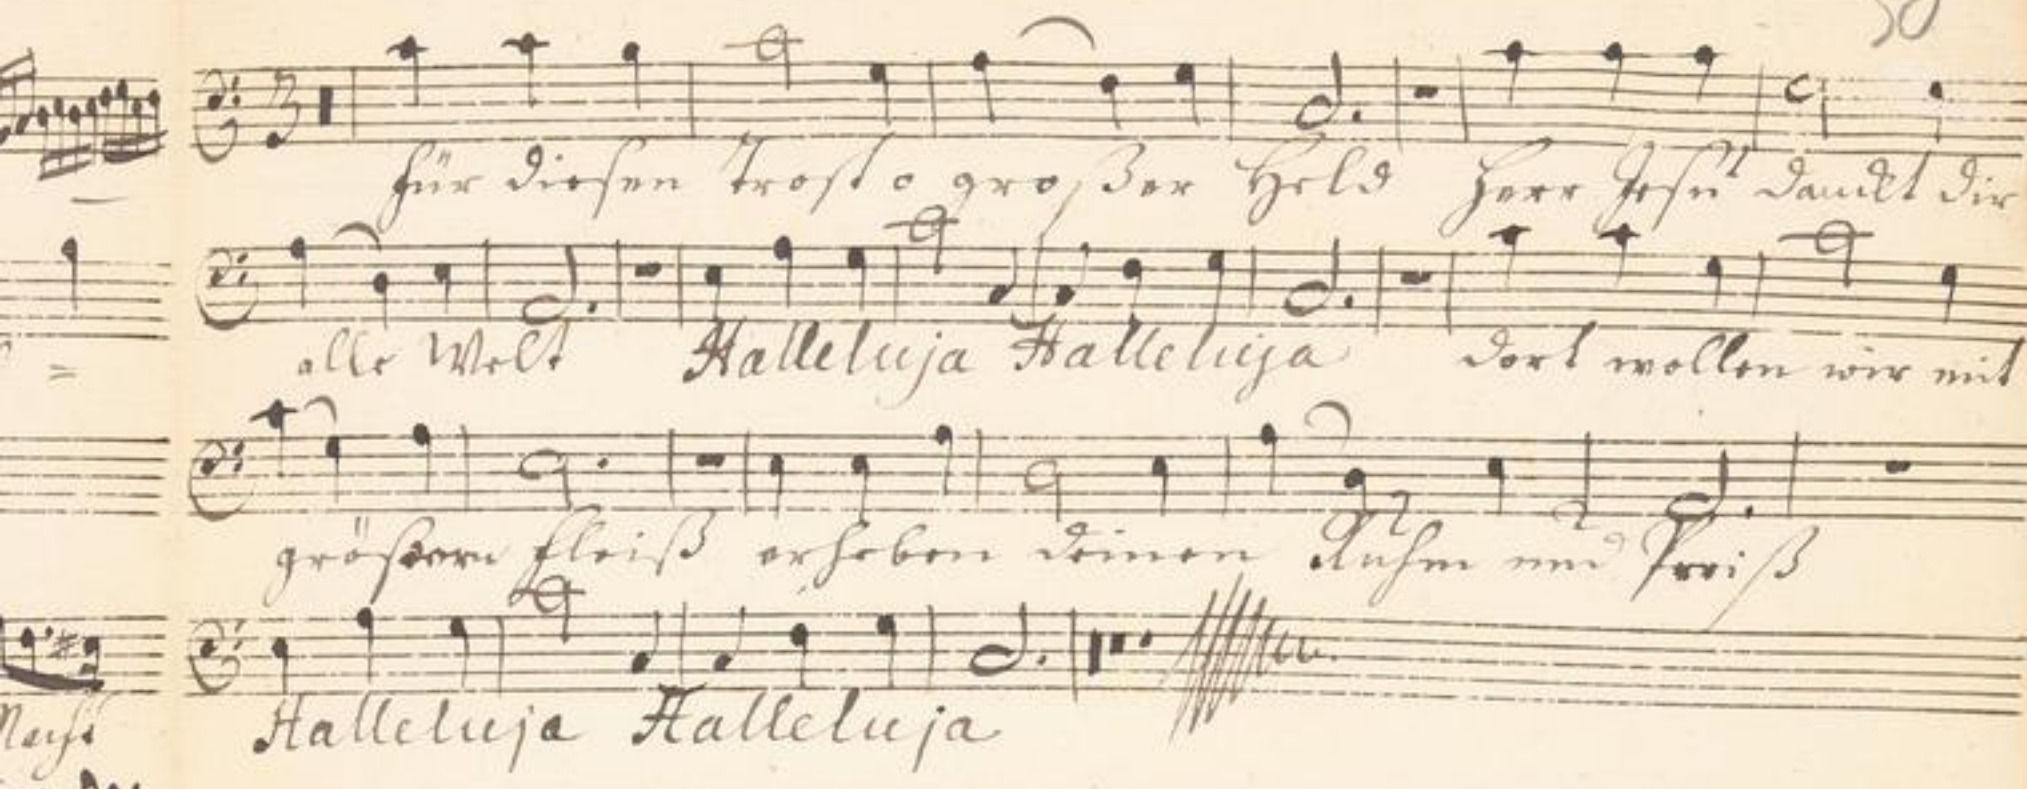 für diesen trost o großer Held Herr Jesu danckt dir
alle Welt Halleluja Halleluja dort wollen wir mit
größern fleiß erheben deinen Ruhm und Preiß
Halleluja Halleluja